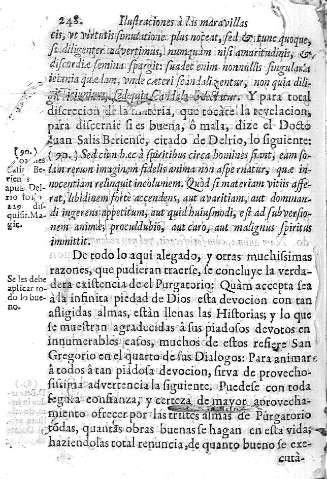 248. Ilustraciones à las maravillas
eis, vt virtutis simulatione plus noceat, sed & tunc quoque,
si diligenter advertimus, nunquam nisi amaritudinis, &
discordiæ semina spargit: suadet enim nonnullis singularia
ieiunia quædam, vnde cæteri scandalizentur, non quia
Y para total
discrecion de la materia, que tocare la revelacion,
para discernir si es buena, ò mala, dize el Docto
Juan Salis Beriense, citado de Delrio, lo siguiente:
(90.) Sed cum hæc à spiritibus circa homines fiant, eam so-
lam rerum imaginem fidelis anima non aspernatur, quæ in-
nocentiam relinquit incolumem. Quòd si materiam vitijs affe-
rat, libidinem forte accendens, aut avaritiam, aut dominan-
di ingerens appetitum, aut quid huiusmodi, est ad subversio-
nem animæ, proculdubio, aut caro, aut malignus spiritus
immittit.
(90.)
Joannes
Salis Be-
riens
apud Del-
rio
disquis. Ma-
gic.
De todo lo aqui alegado, y otras muchissimas
razones, que pudieran traerse, se concluye la verda-
dera existencia de el Purgatorio: Quàm accepta sea
à la infinita piedad de Dios esta devocion con tan
afligidas almas, estàn llenas las Historias; y lo que
se muestran agradecidas à sus piadosos devotos en
innumerables casos, muchos de estos refiere San
Gregorio en el quarto de sus Dialogos: Para animar
à todos à tan piadosa devocion, sirva de provecho-
sissima advertencia la siguiente. Puedese con toda
segura confianza, y certeza de mayor aprovecha-
miento ofrecer por las tristes almas de Purgatorio
todas, quantas obras buenas se hagan en esta vida,
haziendolas total renuncia, de quanto bueno se exe-
cutà-
Se les debe
aplicar to-
do lo bue-
no.